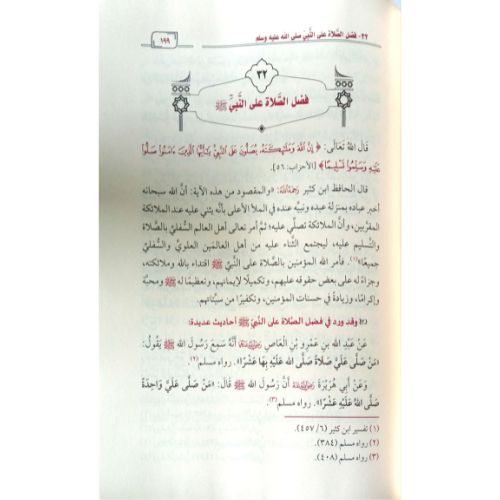 ٣٢- فضل الصَّلاة على النَّبِيِّ صلى الله عليه وسلم
١٩٩
٣٢
فضل الصَّلاة على النَّبِيِّ ﷺ
قَالَ اللهُ تَعَالَى: ﴿إِنَّ اللَّهَ وَمَلَائِكَتَهُ يُصَلُّونَ عَلَى النَّبِيِّ يَا أَيُّهَا الَّذِينَ ءَامَنُوا صَلُّوا
عَلَيْهِ وَسَلِّمُوا تَسْلِيمًا﴾ [الأحزاب: ٥٦].
قال الحافظ ابن كثير رَحِمَهُ اللهُ: «والمقصود من هذه الآية: أنَّ الله سبحانه
أخبر عباده بمنزلة عبده ونبيِّه عنده في الملأ الأعلى بأنَّه يثني عليه عند الملائكة
المقرَّبين، وأنَّ الملائكة تصلِّي عليه؛ ثمَّ أمر تعالى أهل العالم السُّفليِّ بالصَّلاة
والتَّسليم عليه، ليجتمع الثَّناء عليه من أهل العالَمَين العلويِّ والسُّفليِّ
جميعًا»(١). فأمر الله المؤمنين بالصَّلاة على النَّبِيِّ ﷺ اقتداء بالله وملائكته،
وجزاءً له على بعض حقوقه عليهم، وتكميلًا لإيمانهم، وتعظيمًا له ﷺ ومحبَّة
وإكرامًا، وزيادةً في حسنات المؤمنين، وتكفيرًا من سيِّئاتهم.
وقد ورد في فضل الصَّلاة على النَّبِيِّ ﷺ أحاديث عديدة:
عَنْ عَبْدِ اللهِ بْنِ عَمْرِو بْنِ الْعَاصِ رَضِيَ اللهُ عَنْهُمَا أَنَّهُ سَمِعَ رَسُولَ اللهِ ﷺ يَقُولُ:
«مَنْ صَلَّى عَلَيَّ صَلَاةً صَلَّى الله عَلَيْهِ بِهَا عَشْرًا». رواه مسلم(٢).
وَعَنْ أَبِي هُرَيْرَةَ رَضِيَ اللهُ عَنْهُ أَنَّ رَسُولَ اللهِ ﷺ قَالَ: «مَنْ صَلَّى عَلَيَّ وَاحِدَةً
صَلَّى اللهُ عَلَيْهِ عَشْرًا». رواه مسلم(٣).
(١) تفسير ابن كثير (٦/ ٤٥٧).
(٢) رواه مسلم (٣٨٤).
(٣) رواه مسلم (٤٠٨).